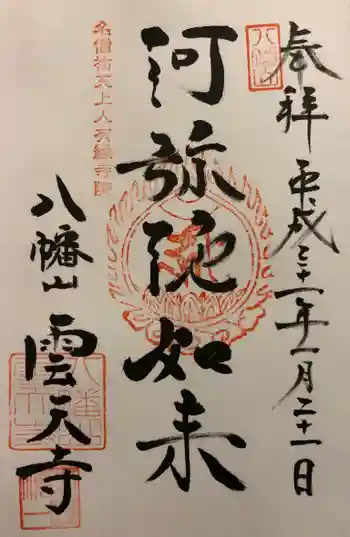 八幡山
奉拝 平成三十一年一月二十一日
阿弥陀如来
名僧祐天上人有縁寺院
八幡山 雲天寺